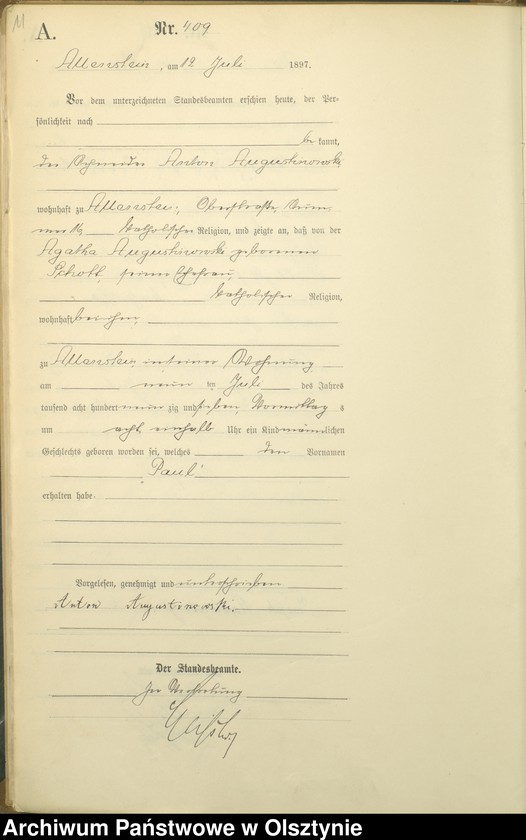 11
A.
Nr. 409
Allenstein, am 12 Juli 1897.
Vor dem unterzeichneten Standesbeamten erschien heute, der Per-
sönlichkeit nach
be kannt,
der Schneider Anton Augustinowski
wohnhaft zu Allenstein, Oberstraße Num-
mer
katholischer Religion, und zeigte an, daß von der
Agatha Augustinowski geborenen
Schott, seiner Ehefrau,
katholischer Religion,
wohnhaft bei ihm,
zu Allenstein in seiner Wohnung
am neun ten Juli des Jahres
tausend acht hundert neun zig und sieben Vormittag s
um acht einhalb Uhr ein Kind männlichen
Geschlechts geboren worden sei, welches den Vornamen
Paul
erhalten habe.
Vorgelesen, genehmigt und unterschrieben
Anton Augustinowski.
Der Standesbeamte.
In Vertretung
Archiwum Państwowe w Olsztynie